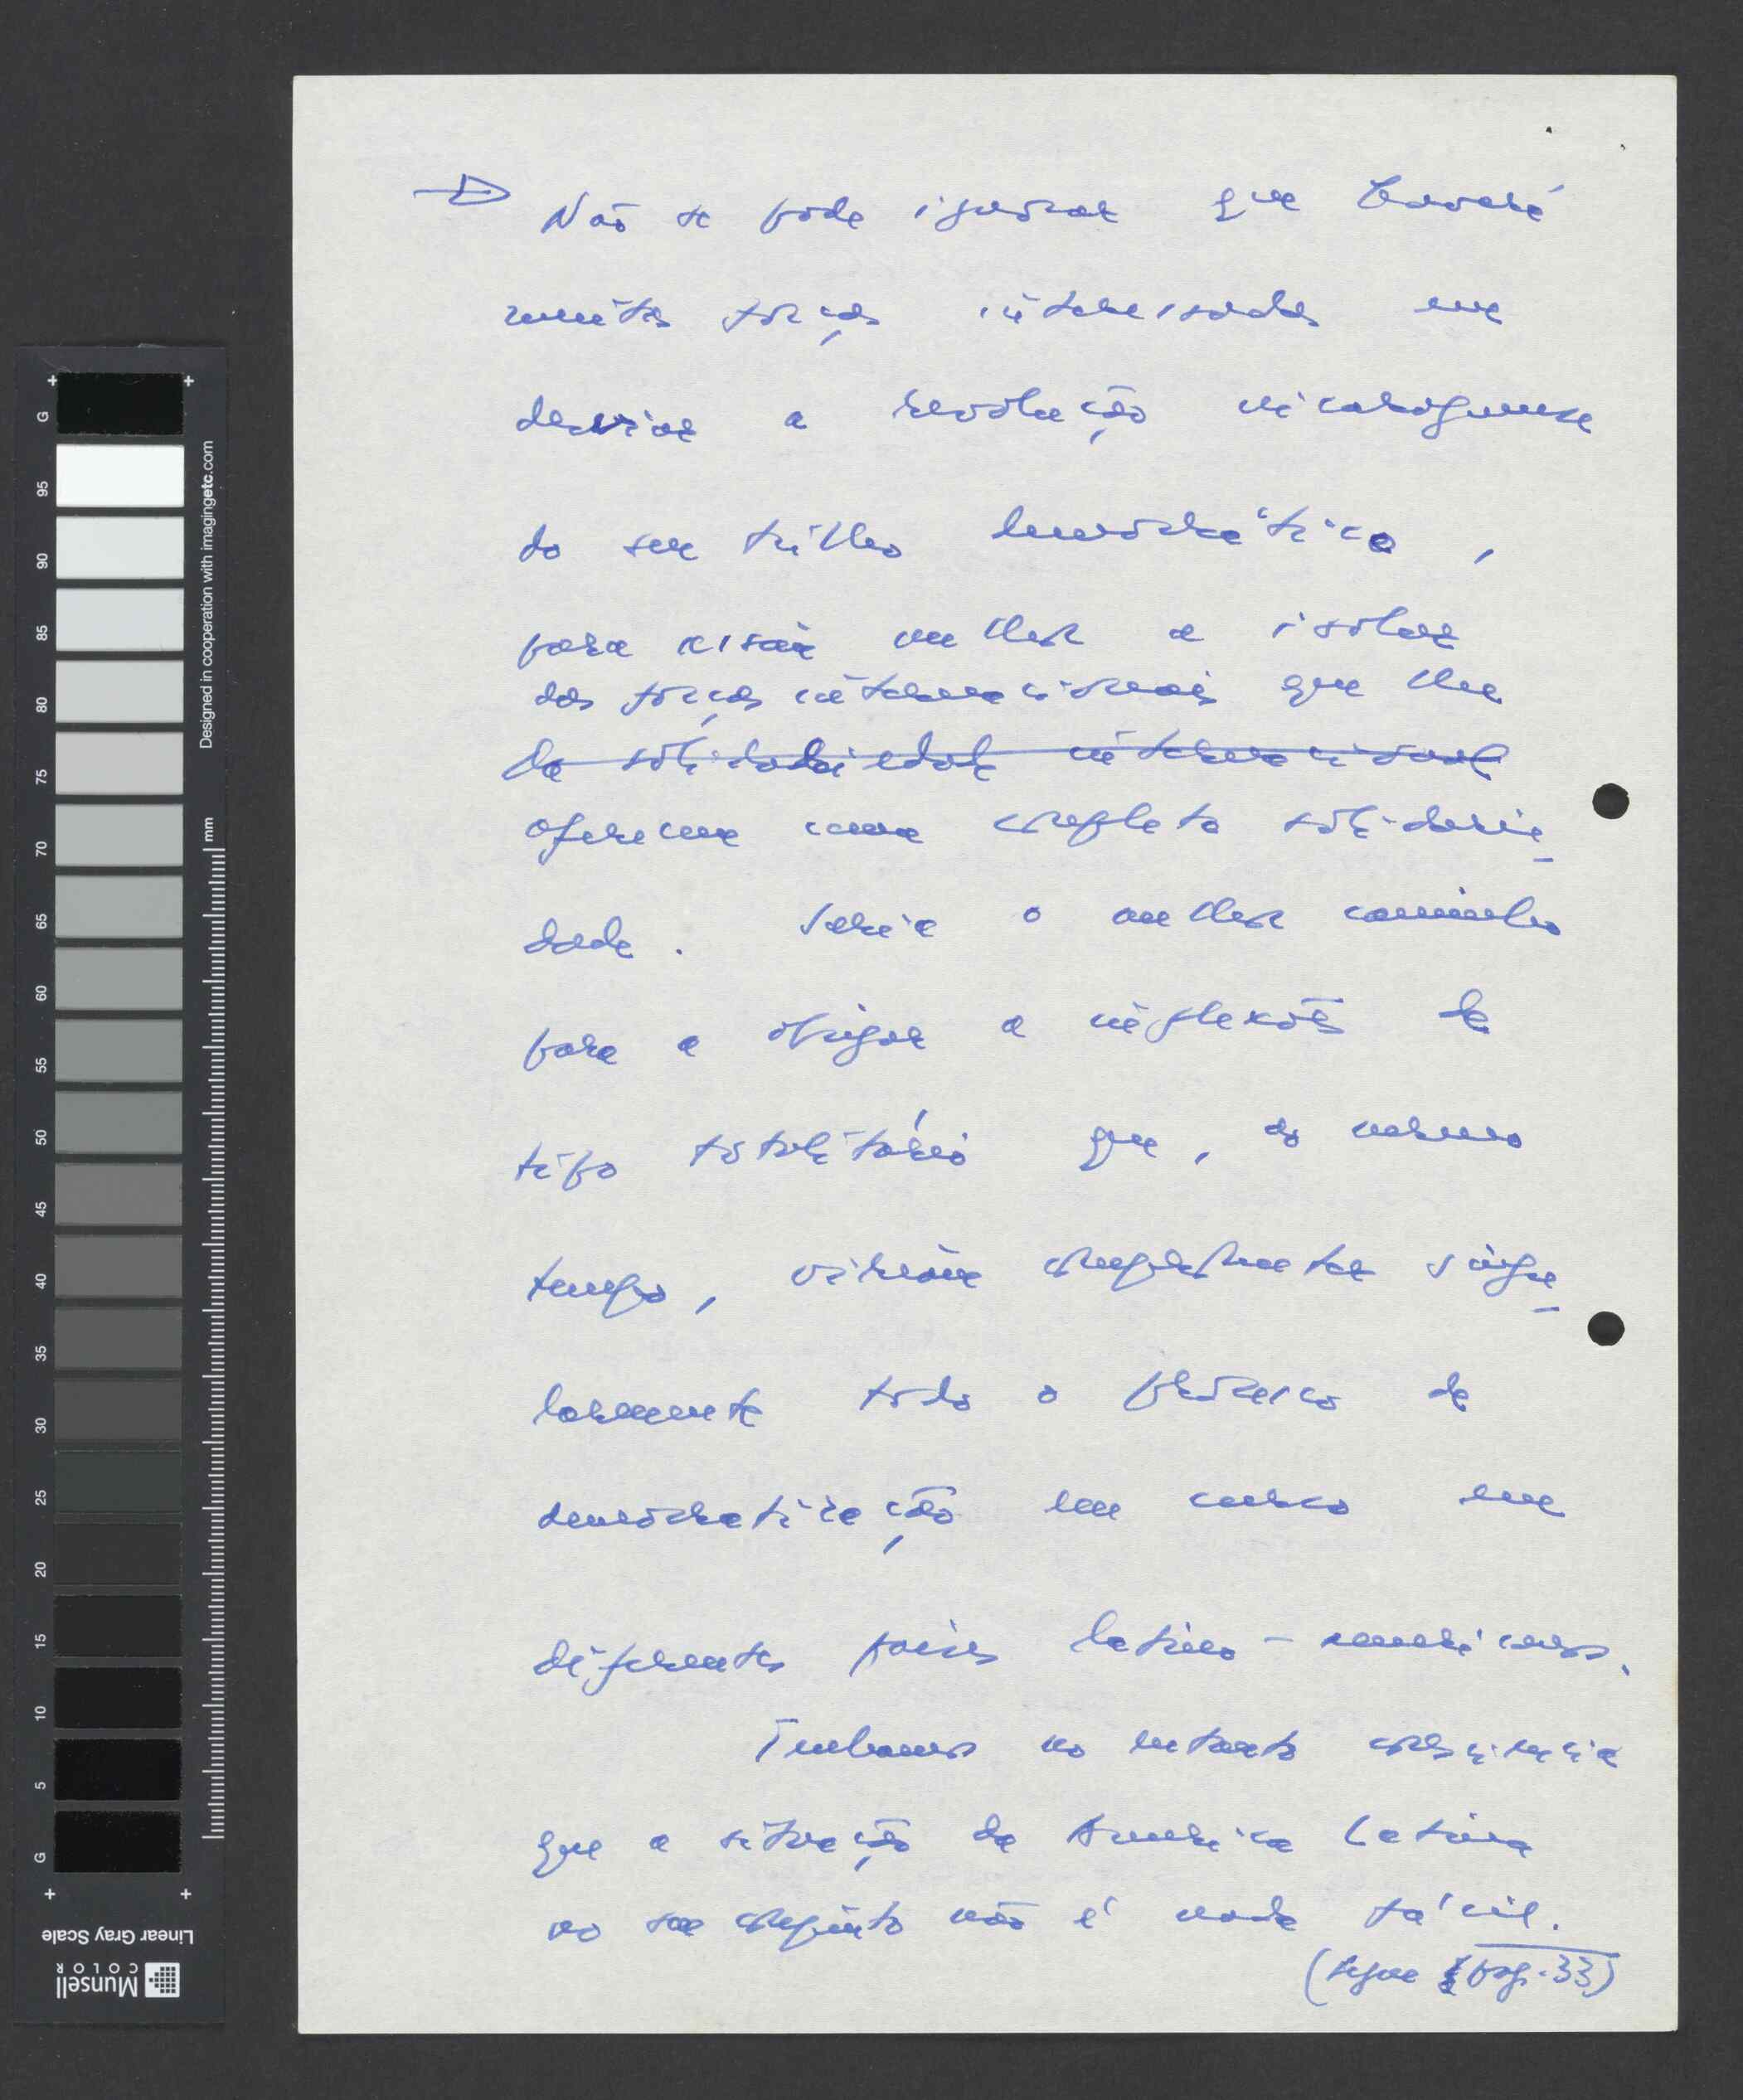 → Não se pode ignorar que haverá
muitas forças interessadas em
desviar a revolução nicaraguense
do seu trilho democrático,
para assim melhor a isolar
das forças internacionais que lhe
da solidariedade internacional
oferecem uma completa solidarie-
dade. Seria o melhor caminho
para a obrigar a inflexões de
tipo totalitário que, ao mesmo
tempo, viriam comprometer singu-
larmente todo o processo de
democratização em curso em
diferentes países latino-americanos.
Tenhamos no entanto consciência
que a situação da América Latina
no seu conjunto não é nada fácil.
(segue pag. 33)
G
95
90
85
80
75
70
65
60
55
50
45
40
35
30
25
20
15
10
5
G
mm
Designed in cooperation with imagingetc.com
Linear Gray Scale
Munsell
COLOR